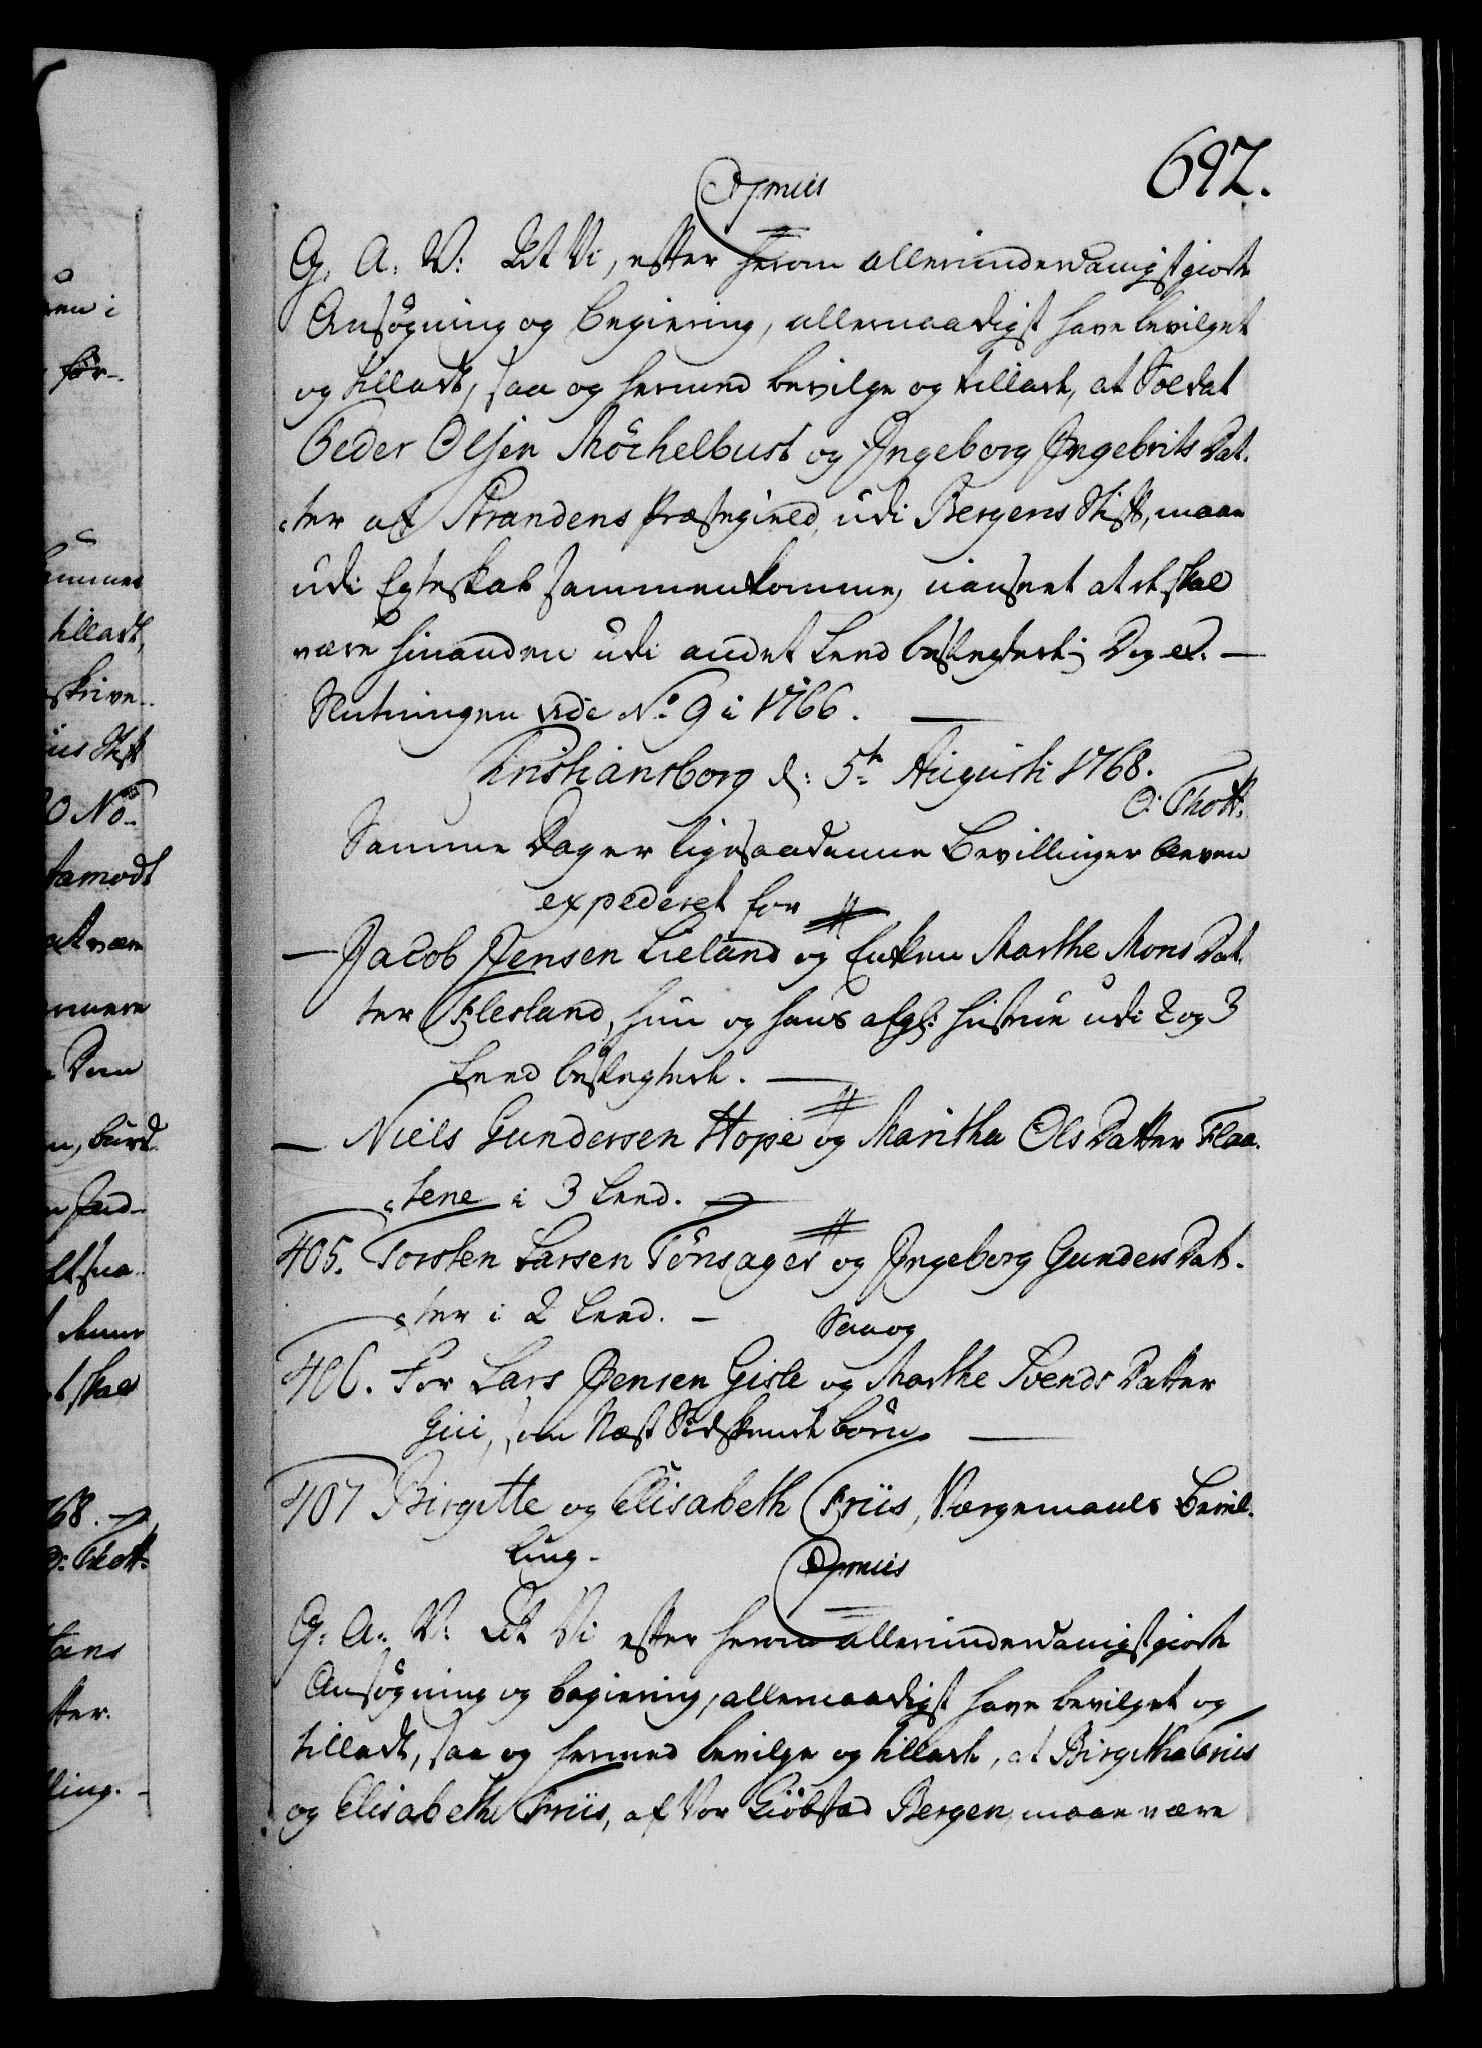 692.
Gratis
G. A. V: At Vi, efter herom allerunderdanigst giorte
Ansøgning og begiering, allernaadigst have bevilget
og tilladt, saa og hermed bevilge og tillade, at Soldat
Peder Olsen Möchelbust og Ingeborg Ingebrits Dat-
ter af Strandens Præstegield, udi Bergens Stift, maae
udi Egteskab sammenkomme, uanseet at de skal
være hinanden udi andet Leed beslegtede; Dog &c. —
Slutningen vide No. 9 i 1766. —
Christiansborg d: 5te Augusti 1768.
O: Thott.
Samme Dag er ligesaadanne Bevillinger bleven
expederet for
— Jacob Jensen Lieland og Enken Marthe Mons Dat-
ter Flesland, hun og hans afgl: Hustrue udi 2 og 3
Leed beslegtede. —
— Niels Gundersen Hope og Maritha Ols Datter Flaa-
tene i 3 Leed. —
405. Torsten Larsen Tönsager og Ingeborg Gunders Dat-
ter i 2 Leed. —
Saa og
406. For Lars Jensen Gisle og Marthe Svends Datter
Giii, som Næst Sødskende börn —
407 Birgitte og Elisabeth Friis, Værgemaals Bevil-
ling.
Gratis
G: A: V: At Vi efter herom allerunderdanigst giorte
Ansøgning og begiering, allernaadigst have bevilget og
tilladt, saa og hermed bevilge og tillade, at Birgitha Friis
og Elisabethe Friis, af Vor Kiöbstad Bergen, maae være